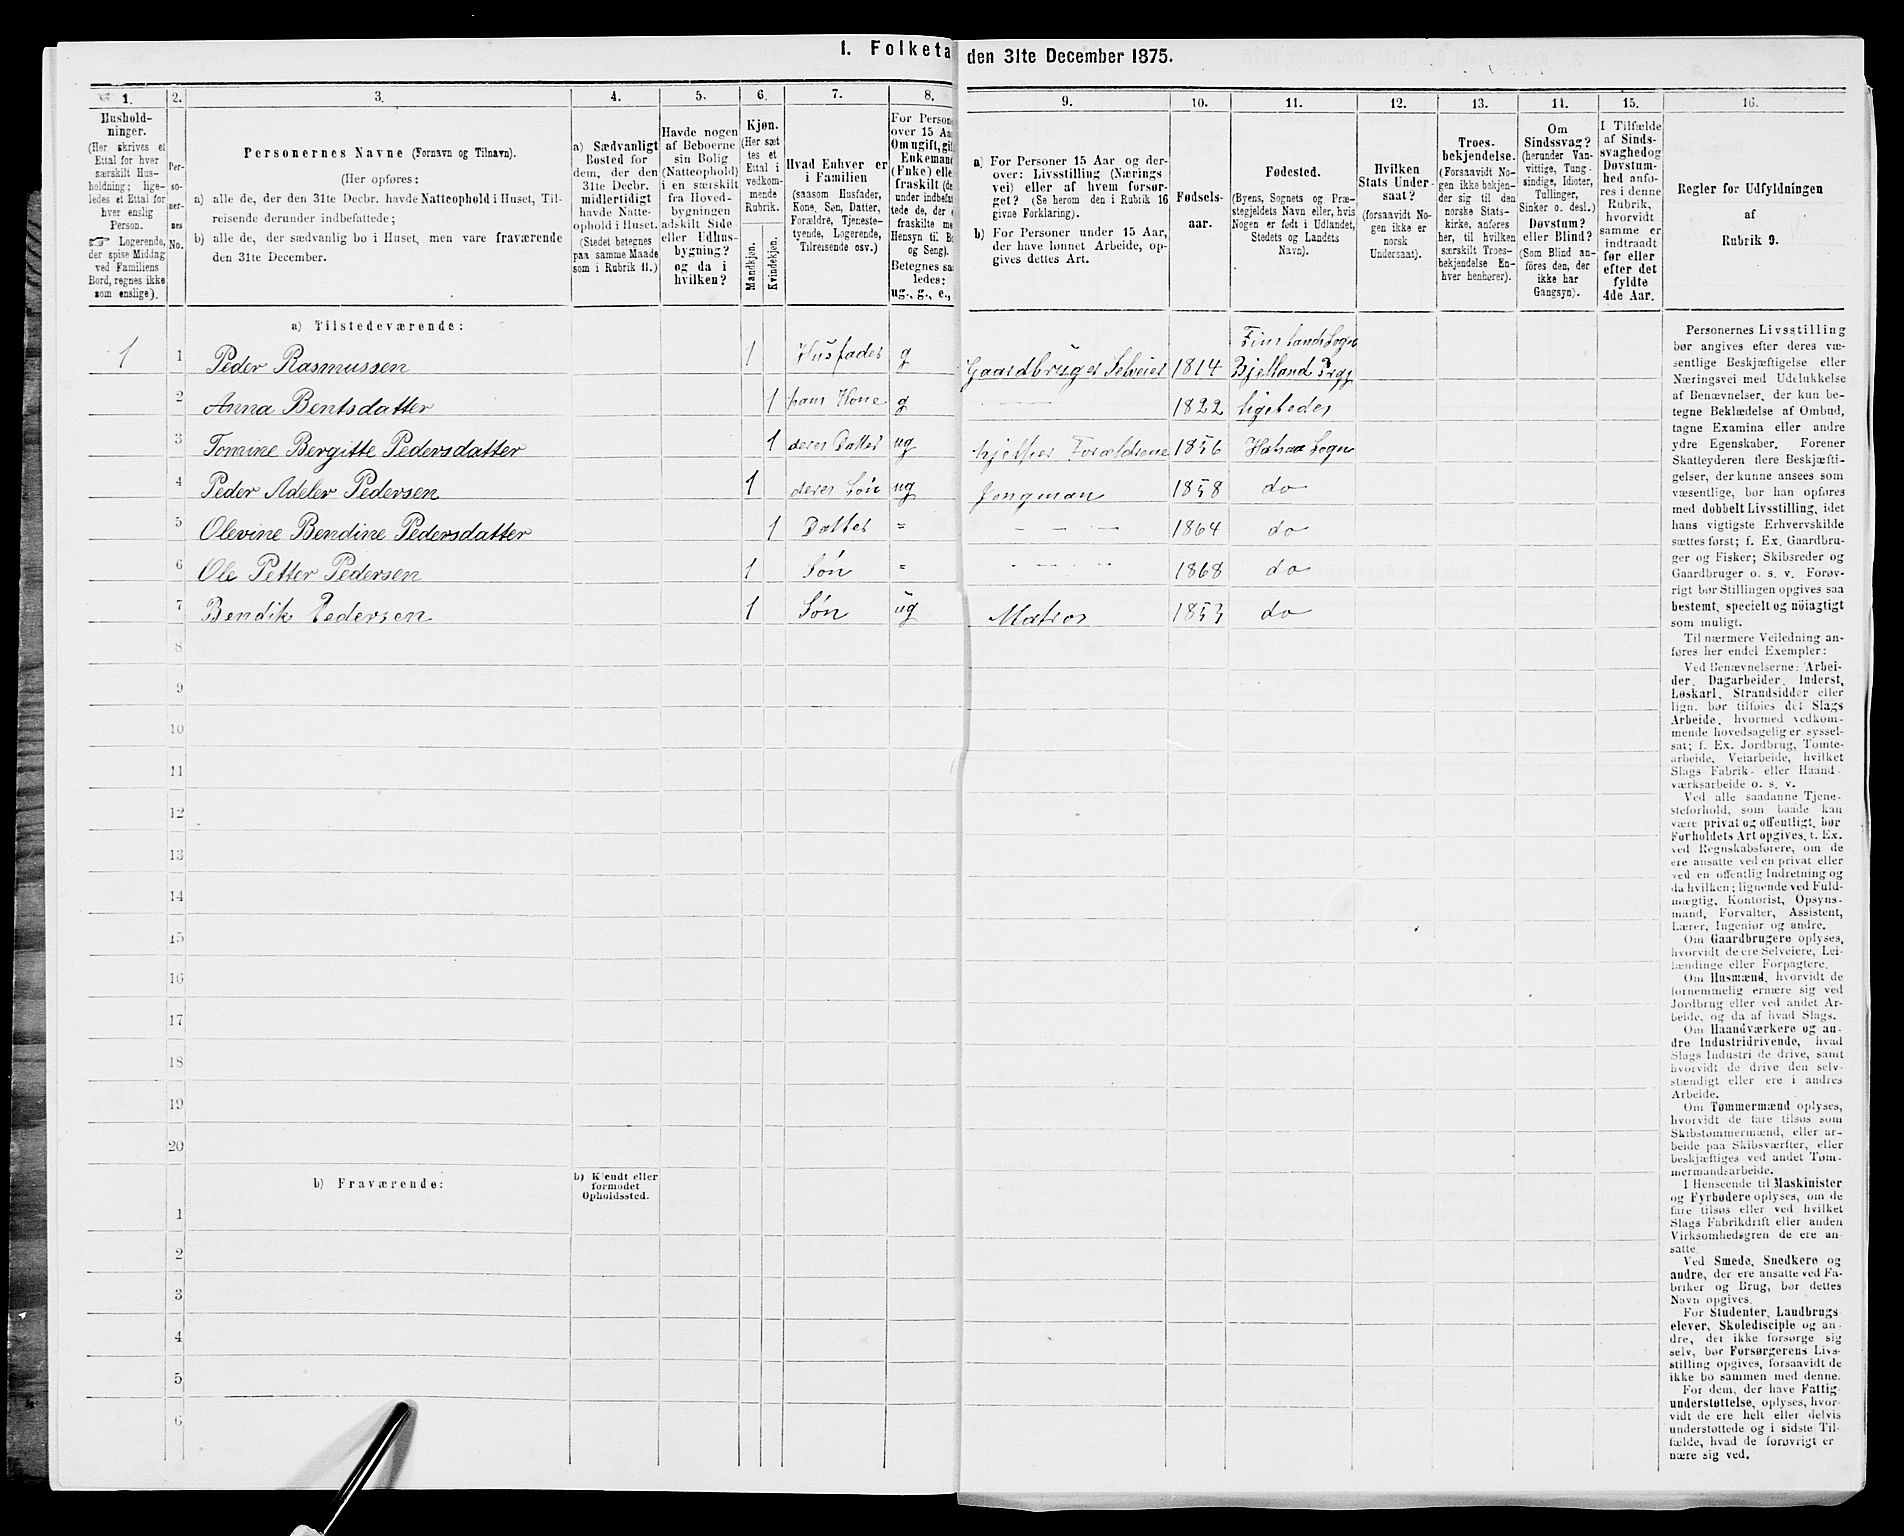 1. Folketa
den 31te December 1875.
1. 2. 3. 4. 5. 6. 7. 8. 9. 10. 11. 12. 13. 14. 15. 16.
Hushold-
ninger.
(Her skrives et
Ettal for hver
særskilt Hus-
holdning; lige-
ledes et Ettal for
hver enslig
Person.
☞ Logerende,
der spise Middag
ved Familiens
Bord, regnes ikke
som enslige).
Per-
so-
ner-
nes
No.
Personernes Navne (Fornavn og Tilnavn).
(Her opføres:
a) alle de, der den 31te Decbr. havde Natteophold i Huset, Til-
reisende derunder indbefattede;
b) alle de, der sædvanlig bo i Huset, men vare fraværende
den 31te December.
a) Sædvanligt
Bosted for
dem, der den
31te Decbr.
midlertidigt
havde Natte-
ophold i Huset.
(Stedet betegnes
paa samme Maade
som i Rubrik 11.)
Havde nogen
af Beboerne
sin Bolig
(Natteophold)
i en særskilt
fra Hoved-
bygningen
adskilt Side-
eller Udhus-
bygning?
og da i
hvilken?
Kjøn.
(Her sæt
tes et
Ettal i
vedkom-
mende
Rubrik.
Mandkjøn.
Kvindekjøn.
Hvad Enhver er
i Familien
(saasom Husfader,
Kone, Søn, Datter,
Forældre, Tjeneste-
tyende, Logerende,
Tilreisende osv.)
For Persone
over 15 Aa
Om ugift, gif
Enkeman
(Enke) elle
fraskilt (de
under indbefa
tede de, der e
fraskilte me
Hensyn til Bo
og Seng).
Betegnes saa
ledes:
ug., g., e.,
a) For Personer 15 Aar og der-
over: Livsstilling (Nærings
vei) eller af hvem forsør-
get? (Se herom den i Rubrik 16
givne Forklaring).
b) For Personer under 15 Aar,
der have lønnet Arbeide, op-
gives dettes Art.
Fødsels-
aar.
Fødested.
(Byens, Sognets og Præ-
stegjeldets Navn eller, hvis
Nogen er født i Udlandet,
Stedets og Landets
Navn).
Hvilken
Stats Under-
saat?
(forsaavidt No-
gen ikke er
norsk
Undersaat).
Troes-
bekjendelse.
(Forsaavidt No-
gen ikke bekjen-
der sig til den
norske Stats-
kirke, anføres
her, til hvilken
særskilt Troes-
bekjendelse En-
hver henhører).
Om
Sindssvag?
(herunder Van-
vittige, Tung-
sindige, Idioter,
Tullinger,
Sinker o. desl.)
Døvstum?
eller Blind?
(Som Blind an-
føres den, der
ikke har
Gangsyn).
I Tilfælde
af Sinds-
svaghed og
Døvstum-
hed anfø-
res i denne
Rubrik,
hvorvidt
samme er
indtraadt
før eller
efter det
fyldte
4de Aar.
Regler for Udfyldningen
af
Rubrik 9.
a) Tilstedeværende:
1 1 Peder Rasmussen 1 Husfader g Gaardbruger Selveier 1814 Finslands Sogn
Bjelland Prgj
2 Anna Bentsdatter 1 hans Kone g 1822 ligeledes
3 Tomine Bergitte Pedersdatter 1 deres Datter ug hjelper Forældrene 1856 Sogn
4 Peder Adeler Pedersen 1 deres Søn ug Jongman 1858 do
5 Olevine Bendine Pedersdatter 1 Datter = 1864 do
6 Ole Petter Pedersen 1 Søn = 1868 do
7 Bendik Pedersen 1 Søn ug Matros 1853 do
8
9
10
11
12
13
14
15
16
17
18
19
20
b) Fraværende:
b) Kjendt eller
formodet
Opholdssted.
1
2
3
4
5
6
Personernes Livsstilling
bør angives efter deres væ-
sentlige Beskjæftigelse eller
Næringsvei med Udelukkelse
af Benævnelser, der kun be-
tegne Beklædelse af Ombud,
tagne Examina eller andre
ydre Egenskaber. Forener
Skatteyderen flere Beskjæfti-
gelser, der kunne ansees som
væsentlige, bør han opføres
med dobbelt Livsstilling, idet
hans vigtigste Erhvervskilde
sættes først; f. Ex. Gaardbru-
ger og Fisker; Skibsreder og
Gaardbruger o. s. v. Forøv-
rigt bør Stillingen opgives saa
bestemt, specielt og nöiagtigt
som muligt.
Til nærmere Veiledning an-
føres her endel Exempler:
Ved Benævnelserne: Arbei-
der, Dagarbeider, Inderst,
Løskarl, Strandsidder eller
lign. bør tilføies det Slags
Arbeide, hvormed vedkom-
mende hovedsagelig er syssel-
sat; f. Ex. Jordbrug, Tomte-
arbeide, Veiarbeide, hvilket
Slags Fabrik- eller Haand-
værksarbeide o. s. v.
Ved alle saadanne Tjene-
steforhold, som baade kan
være privat og offentligt, bør
Forholdets Art opgives, t. Ex.
ved Regnskabsførere, om de
ere ansatte ved en privat eller
ved en offentlig Indretning og
da hvilken; lignende ved Fuld-
mægtig, Kontorist, Opsyns-
mand, Forvalter, Assistent,
Lærer, Ingeniør og andre.
Om Gaardbrugere oplyses,
hvorvidt de ere Selveiere, Lei-
lændinge eller Forpagtere.
Om Husmænd, hvorvidt de
fornemmelig ernære sig ved
Jordbrug eller ved andet Ar-
beide, og da af hvad Slags.
Om Haandværkere og an-
dre Industridrivende, hvad
Slags Industri de drive, samt
hvorvidt de drive den selv-
stændigt eller ere i andres
Arbeide.
Om Tømmermænd oplyses,
hvorvidt de fare tilsøs som
Skibstømmermænd, eller ar-
beide paa Skibsværfter, eller
beskjæftiges ved andet Tøm-
mermandsarbeide.
I Henseende til Maskinister
og Fyrbødere oplyses, om de
fare tilsøs eller ved hvilket
Slags Fabrikdrift eller anden
Virksomhedsgren de ere an-
satte.
Ved Smede, Snedkere og
andre, der ere ansatte ved Fa-
briker og Brug, bør dettes
Navn opgives.
For Studenter, Landbrugs
elever, Skoledisciple og an-
dre, der ikke forsørge sig
selv, bør Forsørgerens Livs-
stilling opgives, forsaavidt de
ikke bo sammen med denne.
For dem, der have Fattig-
understøttelse, oplyses, hvor-
vidt de ere helt eller delvis
understøttede og i sidste Til-
fælde, hvad de forøvrigt er
nære sig ved.